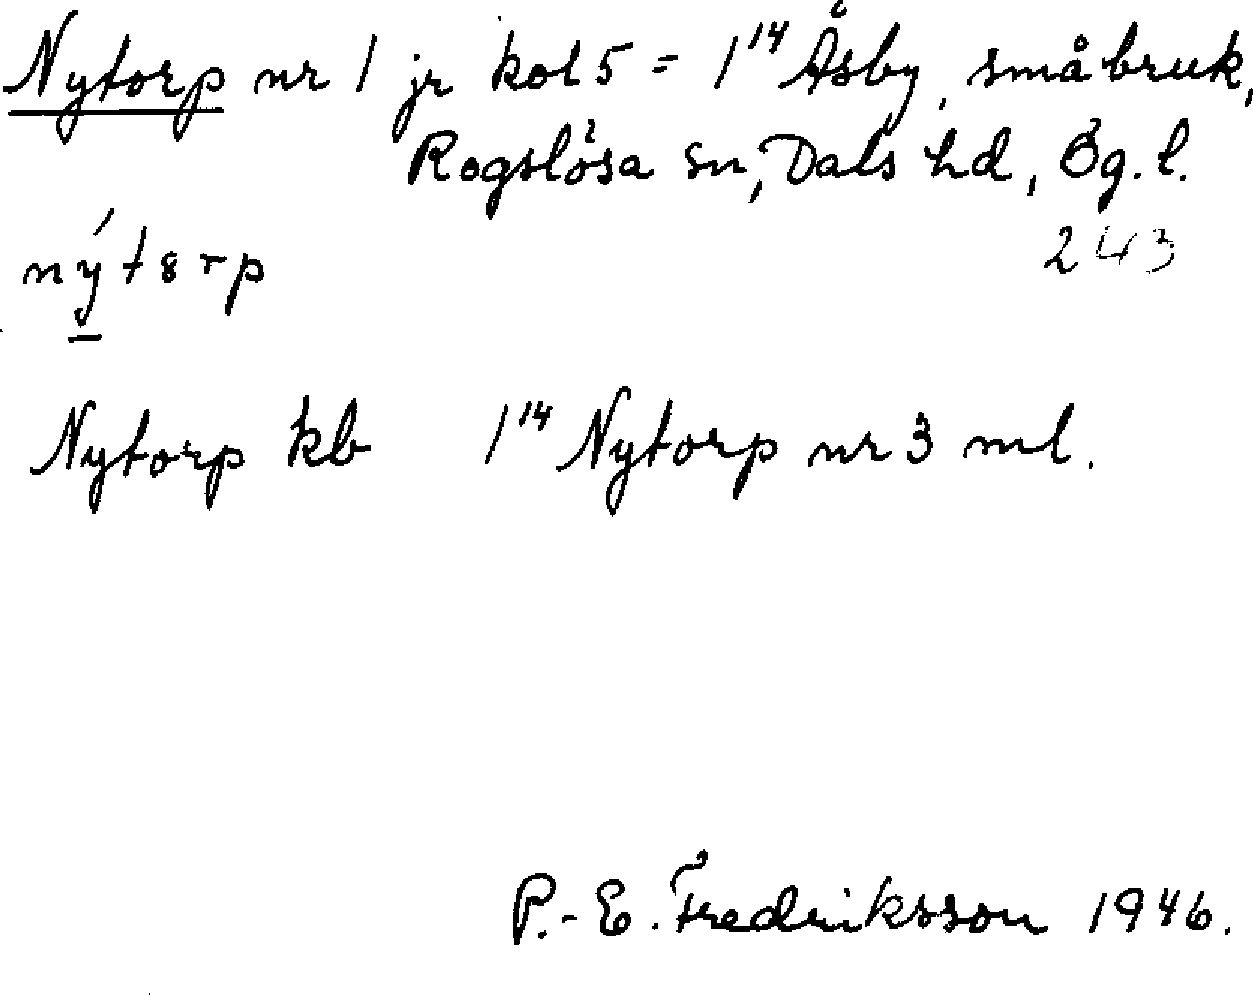 Nytorp nr 1 jr kol 5 = 1¹⁴ Åsby, småbruk,
Rogslösa sn, Dals hd, Ög. l.
243
Nytorp kb 1¹⁴ Nytorp nr 3 ml.
P.-E. Fredriksson 1946.